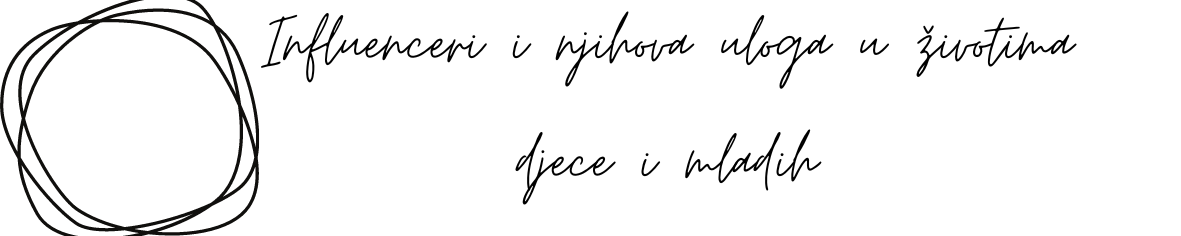 Influenceri i njihova uloga u životima
djece i mladih